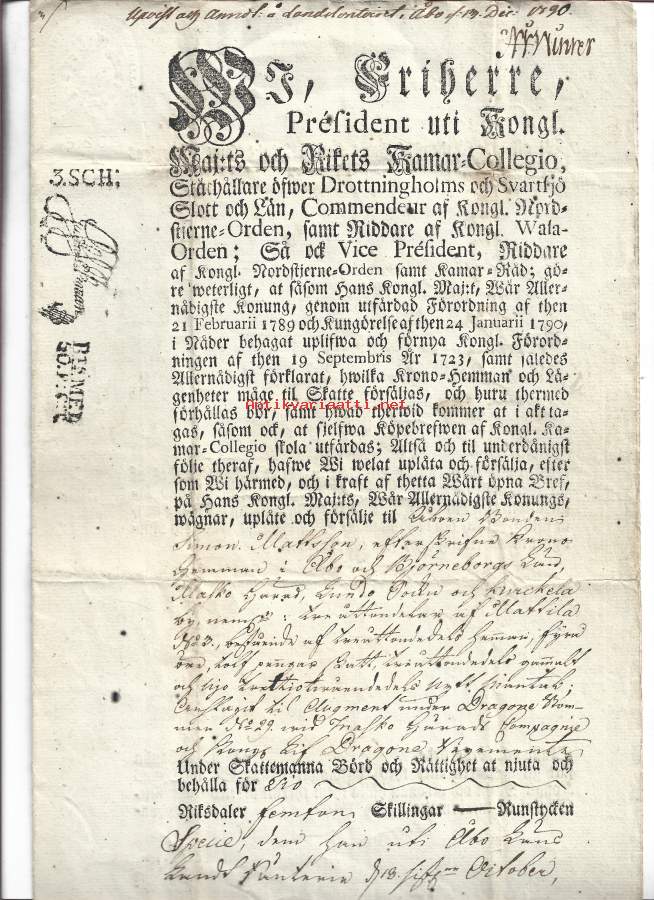 Upvist och Annot. å Landtcontoiret i Åbo d. 13. Dec: 1790.
WI, Friherre,
Président uti Kongl.
Maj:ts och Rikets Kamar-Collegio,
Ståthållare öfwer Drottningholms och Svartsjö
Slott och Län, Commendeur af Kongl. Nord-
stjerne-Orden, samt Riddare af Kongl. Wasa-
Orden; Så ock Vice Président, Riddare
af Kongl. Nordstjerne-Orden samt Kamar-Råd; gö-
re weterligt, at såsom Hans Kongl. Maj:t, Wår Aller-
nådigste Konung, genom utfärdad Förordning af then
21 Februarii 1789 och Kungörelse af then 24 Januarii 1790,
i Nåder behagat uplifwa och förnya Kongl. Förord-
ningen af then 19 Septembris År 1723, samt jäledes
Allernådigst förklarat, hwilka Krono-Hemman och Lä-
genheter måge til Skatte försäljas, och huru thermed
förhållas bör, samt hwad therwid kommer at i akt ta-
gas, såsom ock, at sjelfwa Köpebrefwen af Kongl. Ka-
mar-Collegio skola utfärdas; Altså och til underdånigst
följe theraf, hafwe Wi welat uplåta och försälja, efter
som Wi härmed, och i kraft af thetta Wårt öpna Bref,
på Hans Kongl. Maj:ts, Wår Allernådigste Konungs,
wägnar, uplåte och försälje til Åboen Bonden
Simon Mattsson, efterskrifne Krono
Hemman i Åbo och Björneborgs Län,
Masko Härad, Lundo Sokn och
by, nemln: treåttondelar af Mattila
No 3., bestående af treåttondedels Heman, fyra
öre, tolf penngar skatt, treåttondedels gammalt
och nytt Mantal;
Anslagit til Augment under Dragone Num-
mern No 29. wid Masko Härads Compagnie
och Lif Dragone Regemente
Under Skattemanna Börd och Rättighet at njuta och
behålla för Tio
Riksdaler femton Skillingar — Runstycken
Specie, dem han uti Åbo Läns
Landt Ränterie d. 18. October,
3. SCH:
antikvariaatti.net